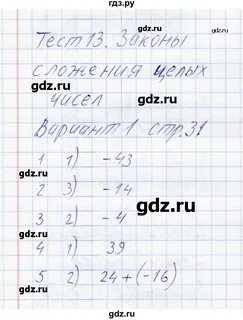 гдз.ру
Тест 13. Законы
сложения целых
чисел
Вариант 1 стр. 31
1 1) -43
2 3) -14
3 2) -4
4 1) 39
5 2) 24+(-16)
gdz.ru
gdz.ru
gdz.ru
gdz.ru
gdz.ru